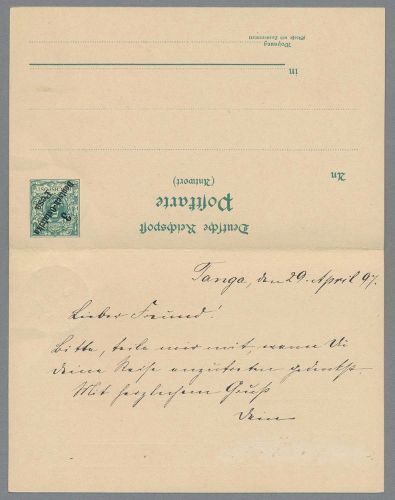 Deutsche Reichspost
Postkarte
(Antwort)
An
in
Wohnung
(Straße und Hausnummer)
3
PESA
Tanga, den 29 April 97.
Lieber Freund!
Bitte, teile mir mit, wann Di
deine Reise anzutreten gedenkst.
Mit herzlichem Gruß
Dein